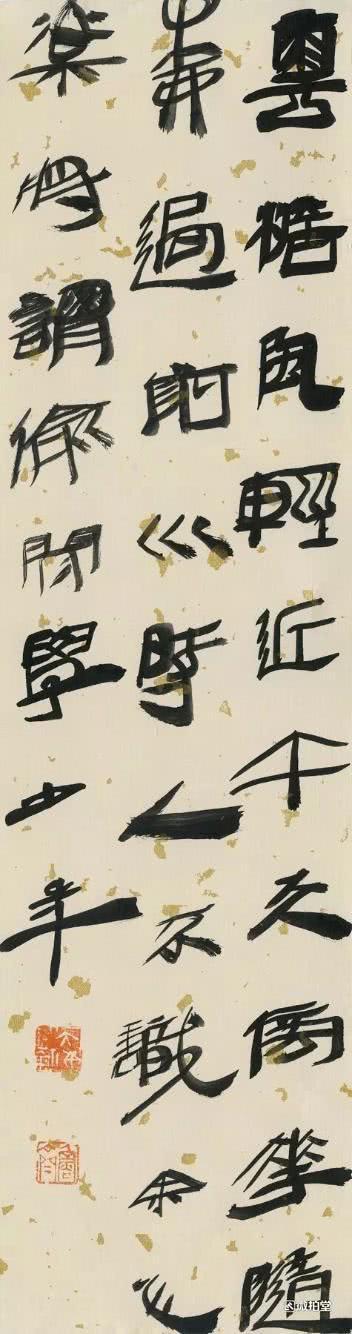 雲澹風輕近午天傍花隨
柳過前川時人不識余心
樂將謂偷閑學少年